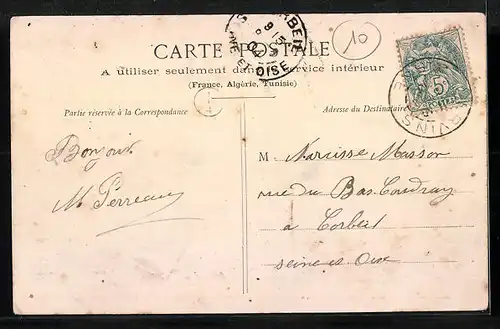 CARTE POSTALE
A utiliser seulement dans le service intérieur
(France, Algérie, Tunisie)
Partie réservée à la Correspondance
Adresse du Destinataire
10
5
Bonjour
M Perreau
M. Narcisse Masson
rue du Bas Coudray
à Corbeil
Seine et Oise